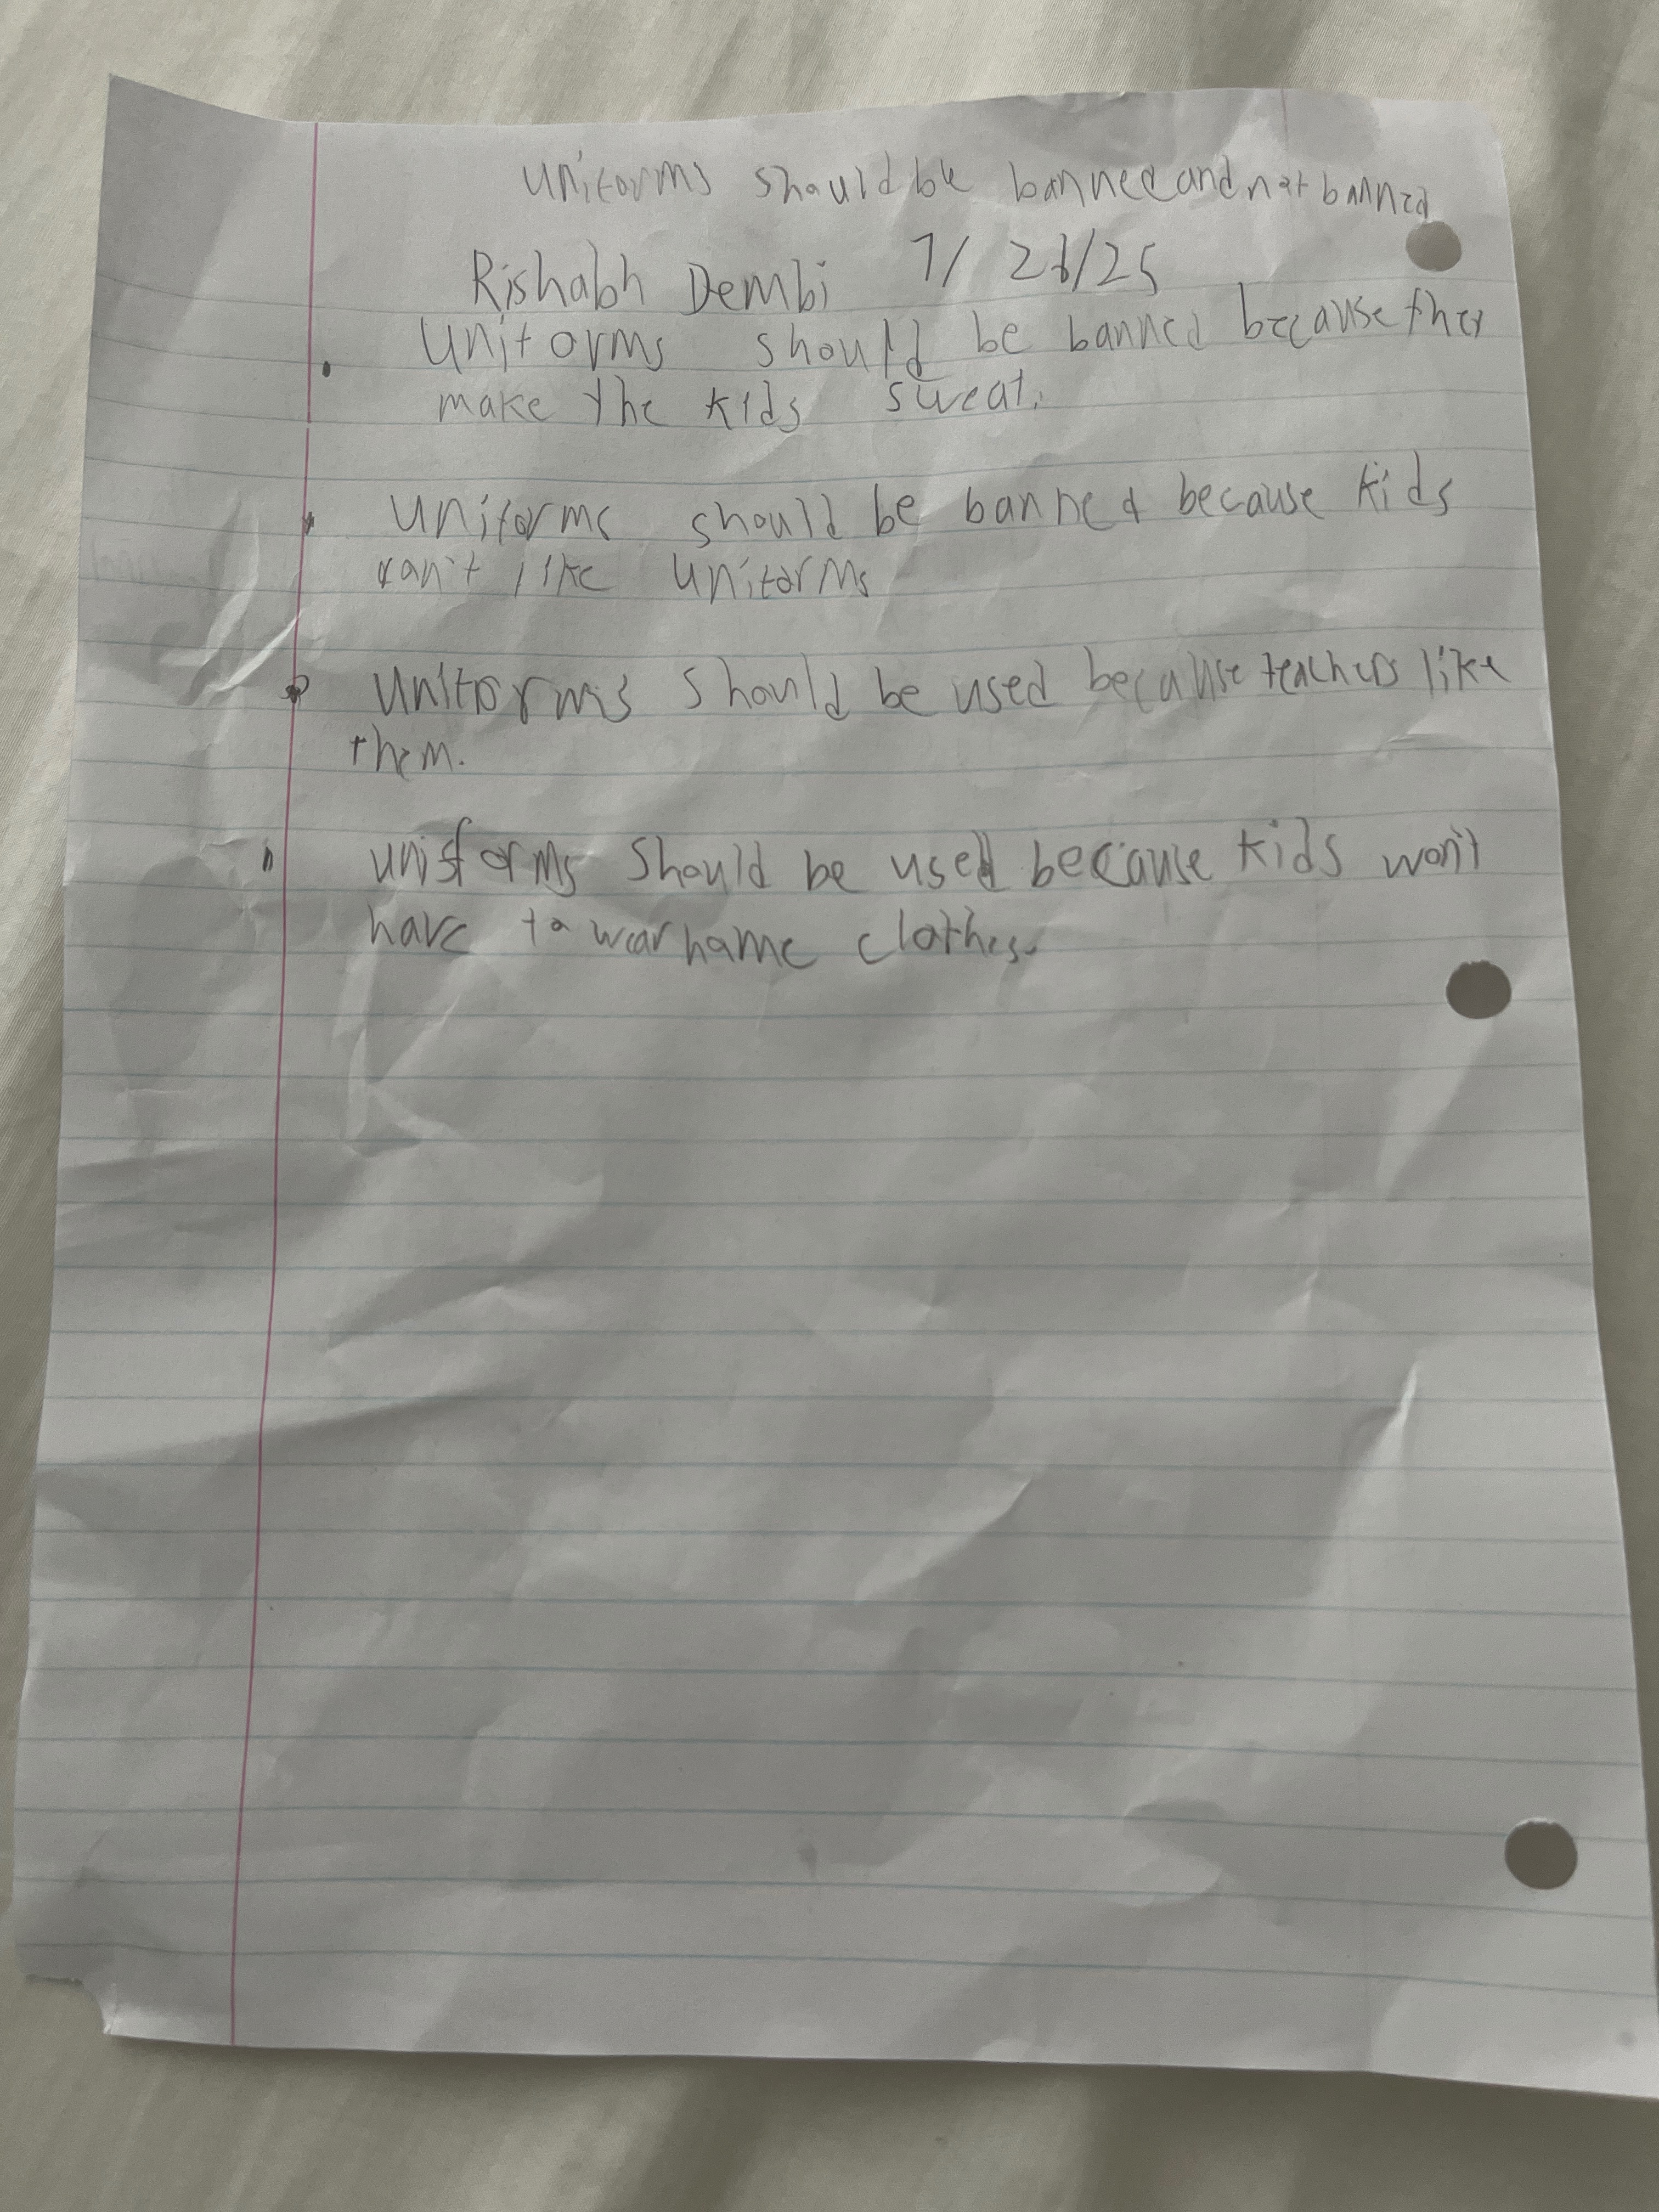 uniforms should be banned and not banned
Rishabh Dembi 7/ 2 /25
• Uniforms should be banned because they
make the kids sweat.
• Uniforms should be banned because kids
can't like uniforms
• Uniforms should be used because teachers like
them.
• uniforms should be used because kids won't
have to wear home clothes.